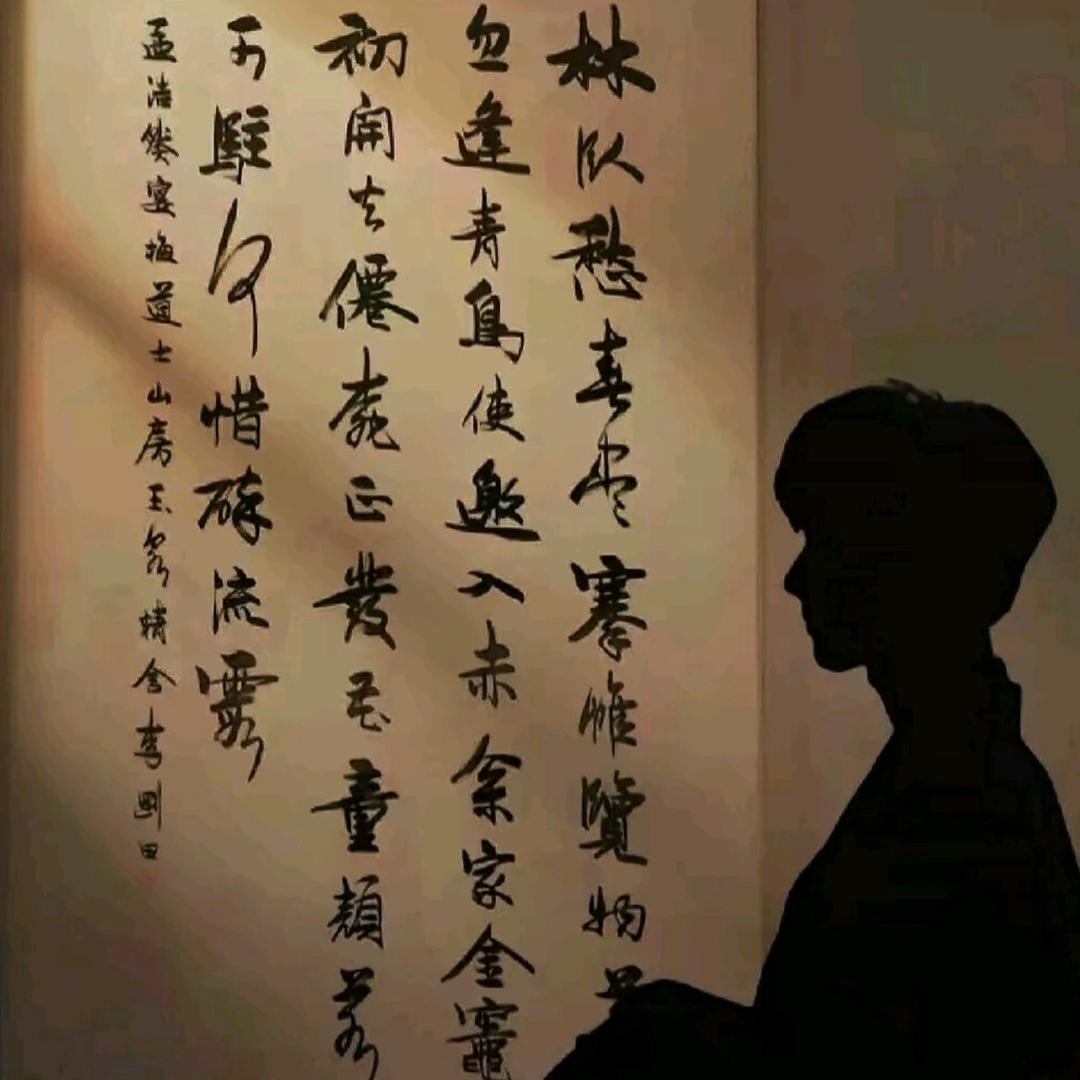 林臥愁春尽搴帷覽物
忽逢青鳥使邀入赤枀家金竈
初開火僊桃正發花童顏若
可駐何惜醉流霞
孟浩然宴梅道士山房玉精舍李剛田